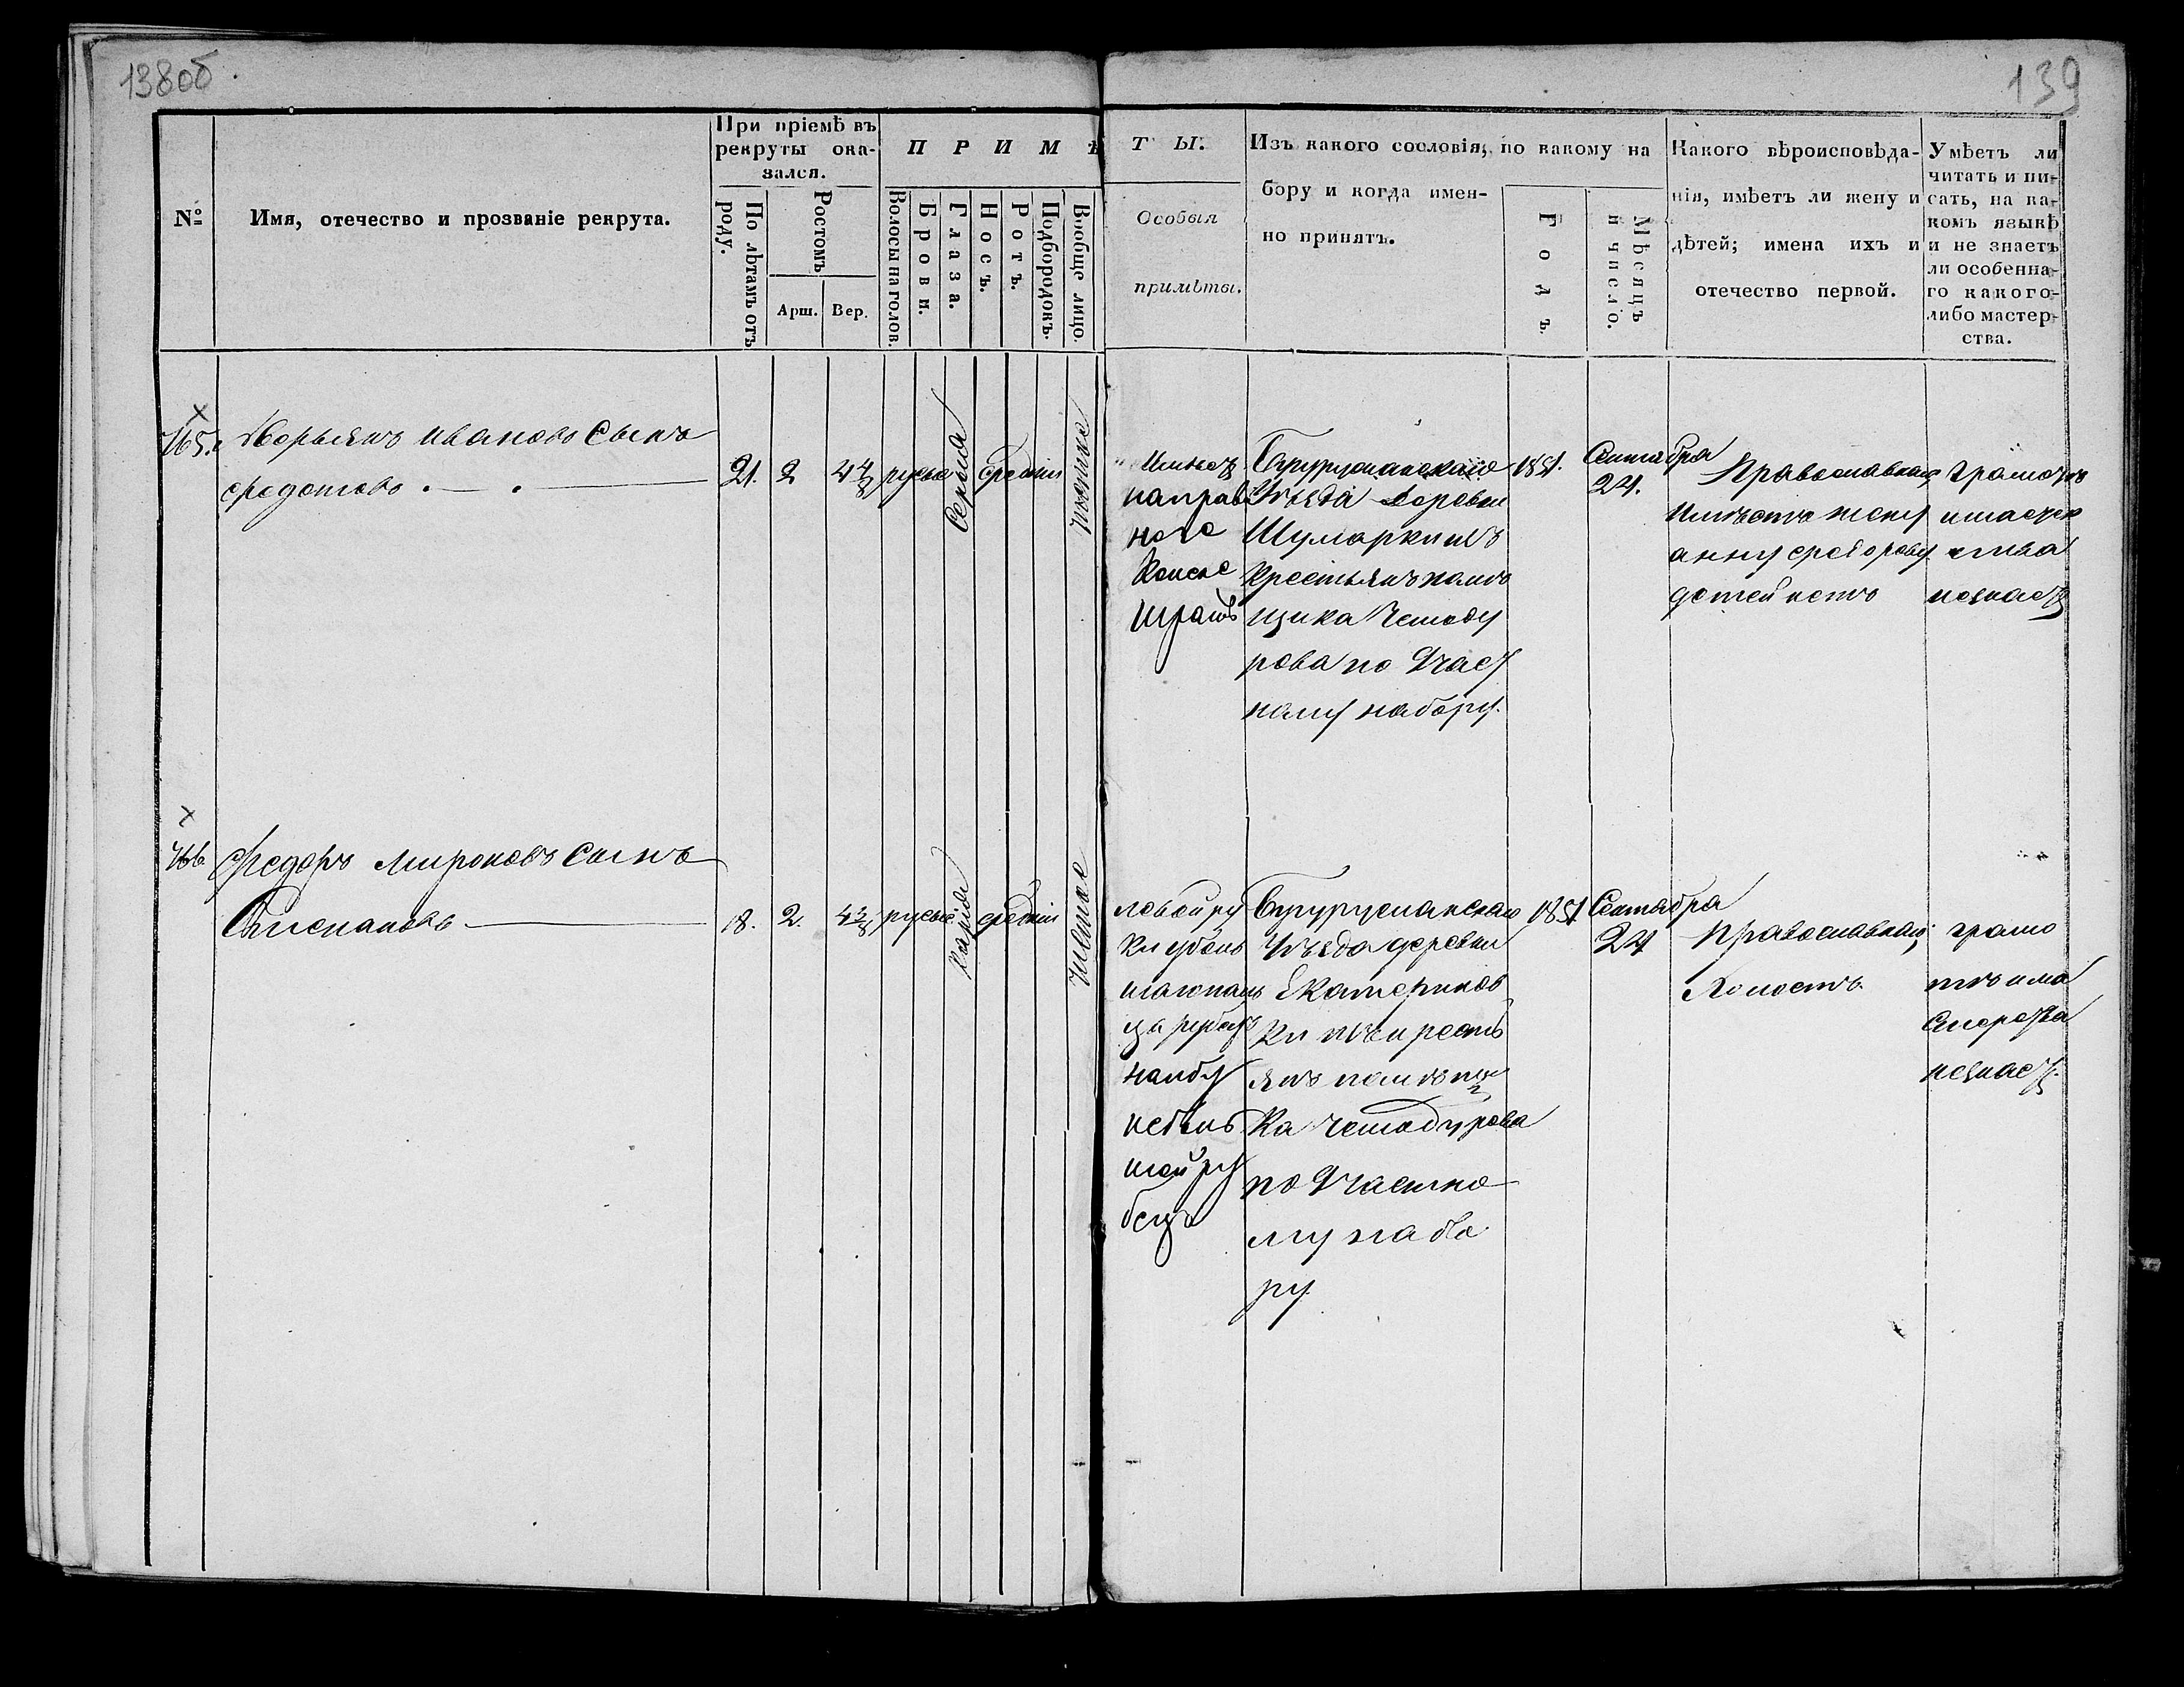 138об.
139
№
Имя, отечество и прозваніе рекрута.
При пріемѣ въ
рекруты ока-
зался.
По лѣтамъ отъ
роду.
Ростомъ
Арш.
Вер.
ПРИМѢ
Волосы на голов.
Брови.
Глаза.
Носъ.
Ротъ.
Подбородокъ.
Вообще лицо.
ТЫ.
Особыя
примѣты.
Изъ какого сословія, по какому на
бору и когда имен-
но принятъ.
Годъ.
Мѣсяцъ
и число.
Какого вѣроисповѣда-
нія, имѣетъ ли жену и
дѣтей; имена ихъ и
отечество первой.
Умѣетъ ли
читать и пи-
сать, на ка-
комъ языкѣ
и не знаетъ
ли особенна-
го какого-
либо мастер-
ства.
165.
Ивановъ Сынъ
Федотовъ
21.
2
4 4/8
русые
Серыя
средніи
Имѣет
на право
ноге
Бугурусланскаго
Уѣзда деревни
Крестьянъ помѣ
щика Чемоду
рова по Част
ному набору.
1851.
Сентября
24.
Православнаго
Имѣетъ жену
анну Федорову
детей нетъ
грамотѣ
незнает
166
Федоръ Мироновъ Сынъ
Степановъ
18.
2.
4 2/8
русые
Карія
средніи
чистое
левой ру
ки
рубецъ
на лбу
ру
бецъ
Бугурусланскаго
Уѣзда деревни
Екатеринов
ки изъ крестѣ
янъ помѣщи
ка Чемодурова
по Частно
му набо
ру.
1851
Сентября
24
Православнаго,
Холостъ.
грамо
тѣ и ма
стерства
незнает.